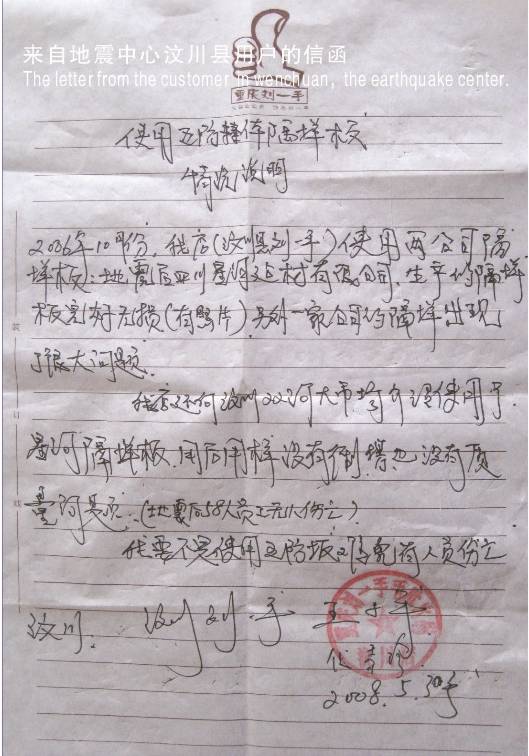 来自地震中心汶川县用户的信函
The letter from the customer in wenchuan, the earthquake center.
重庆刘一手
使用五防整体隔墙板
情况说明
2006年10月份，我店(汶川县刘一手)使用两公司隔
墙板：地震后四川星河建材有限公司，生产的隔墙
板完好无损(有照片)另外一家公司的隔墙出现
了很大问题。
我店还向汶川双河大市场介绍使用了
星河隔墙板，用后同样没有倒塌也没有质
量问题。(地震后58人员工无人伤亡)
我要不是使用五防板 有人员伤亡
汶川 汶川刘一手
2008.5.30